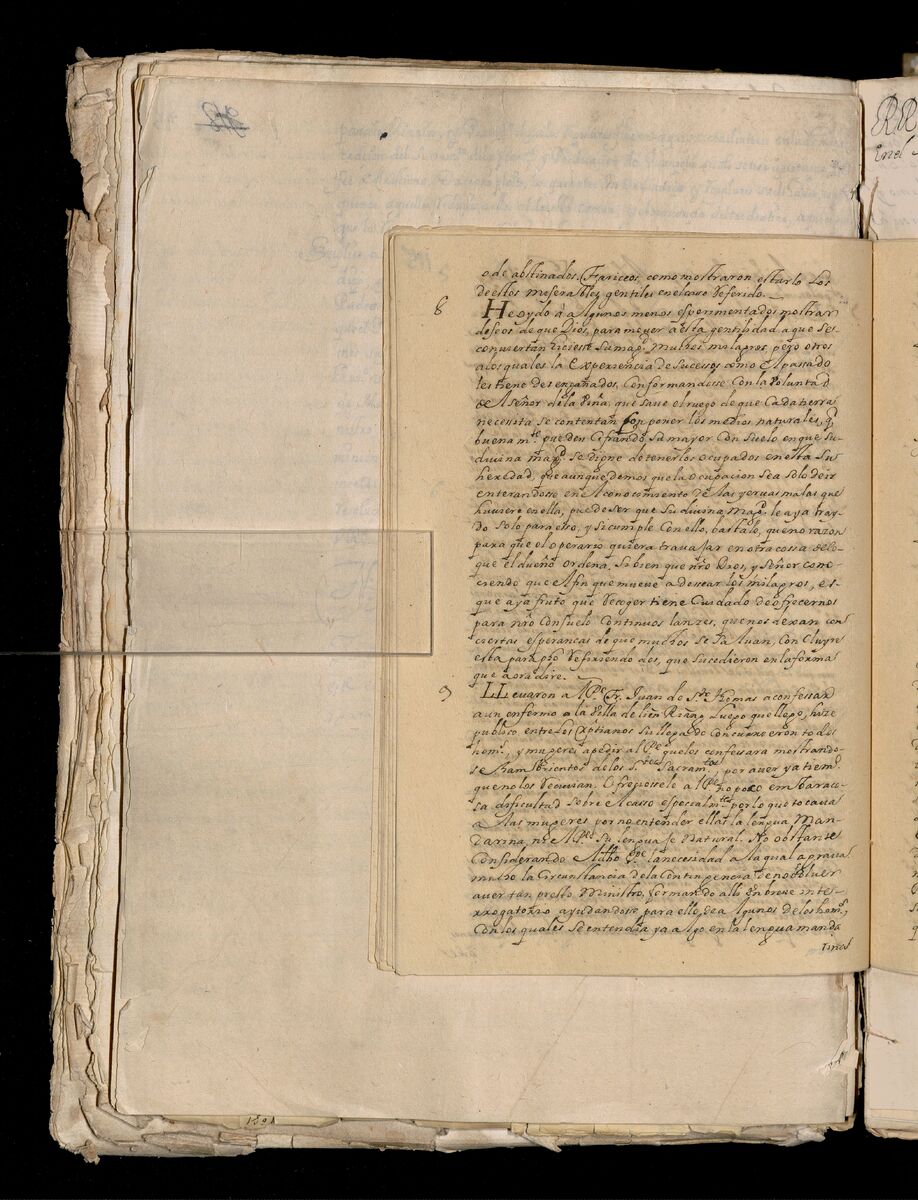 o de obstinados Fariceos, como mostraron estarlo los
de ellos miserables gentiles en el caso referido.
8 He oydo á algunos menos esperimentados mostrar
deseos de que Dios, para mover a esta gentilidad a que se
conviertan hiciesse su magd. muchos milagros, pero otros
a los quales la Experiencia de sucessos como el passado
les tiene desengañados, Conformandose Con la Voluntad
de el señor de la Viña, que save el riego de que Cada tierra
necesita, se contentan Con poner los medios naturales, q
buenamte. pueden Cifrando su mayor Consuelo en que su
divina magd. se digne de tenerlos ocupados en esta su
heredad, que aunque demos que la ocupacion sea solo de ir
enterandose en el conocimiento de las yervas malas que
huviere en ella, puede ser que su divina magd. le aya tray-
do solo para esto, y si cumple Con ello, bastale, que no es razon
para que el operario quiera travajar en otra cossa de lo
que el dueño ordena, si bien que nro Dios, y señor cono-
ciendo que el fin que mueve a dessear los milagros, es
que aya fruto que recoger tiene Cuidado de ofrecernos
para nro Consuelo Continuos lanzes, que nos dexan con
ciertas esperancas de que muchos se salvan, Concluyre
este parrapho refiriendo dos, que sucedieron en la forma
que aora dire.
9 LLevaron a el Pe. Fr. Juan de Sto. Thomas a confessar
a un enfermo a la Villa de Lien Kiang Luego que llego, hizose
publico entre los Xptianos su llegada Concurrieron todos
homs., y mugeres a pedir al Pe. que los confessara mostrando-
se hambrientos de los Stos. Sacramtos., por aver ya tiempo
que no los recivian. Ofreciosele a el Pe. no poco embaraco-
sa dificultad sobre el caso especialmte. por lo que tocava
a las mugeres por no entender ellas la lengua Man-
darina, ni el Pe. su lenguaje Natural. No obstante
Considerando dicho Pe. la necesidad a la qual agravava
mucho la Circunstancia de la Contingencia de no bolver
aver tan presto Ministro, formando alli en breve inter-
rrogatorio ayudandose para ello, de algunos de los homs.,
Con los quales se entendia ya algo en la lengua manda
rina
1591